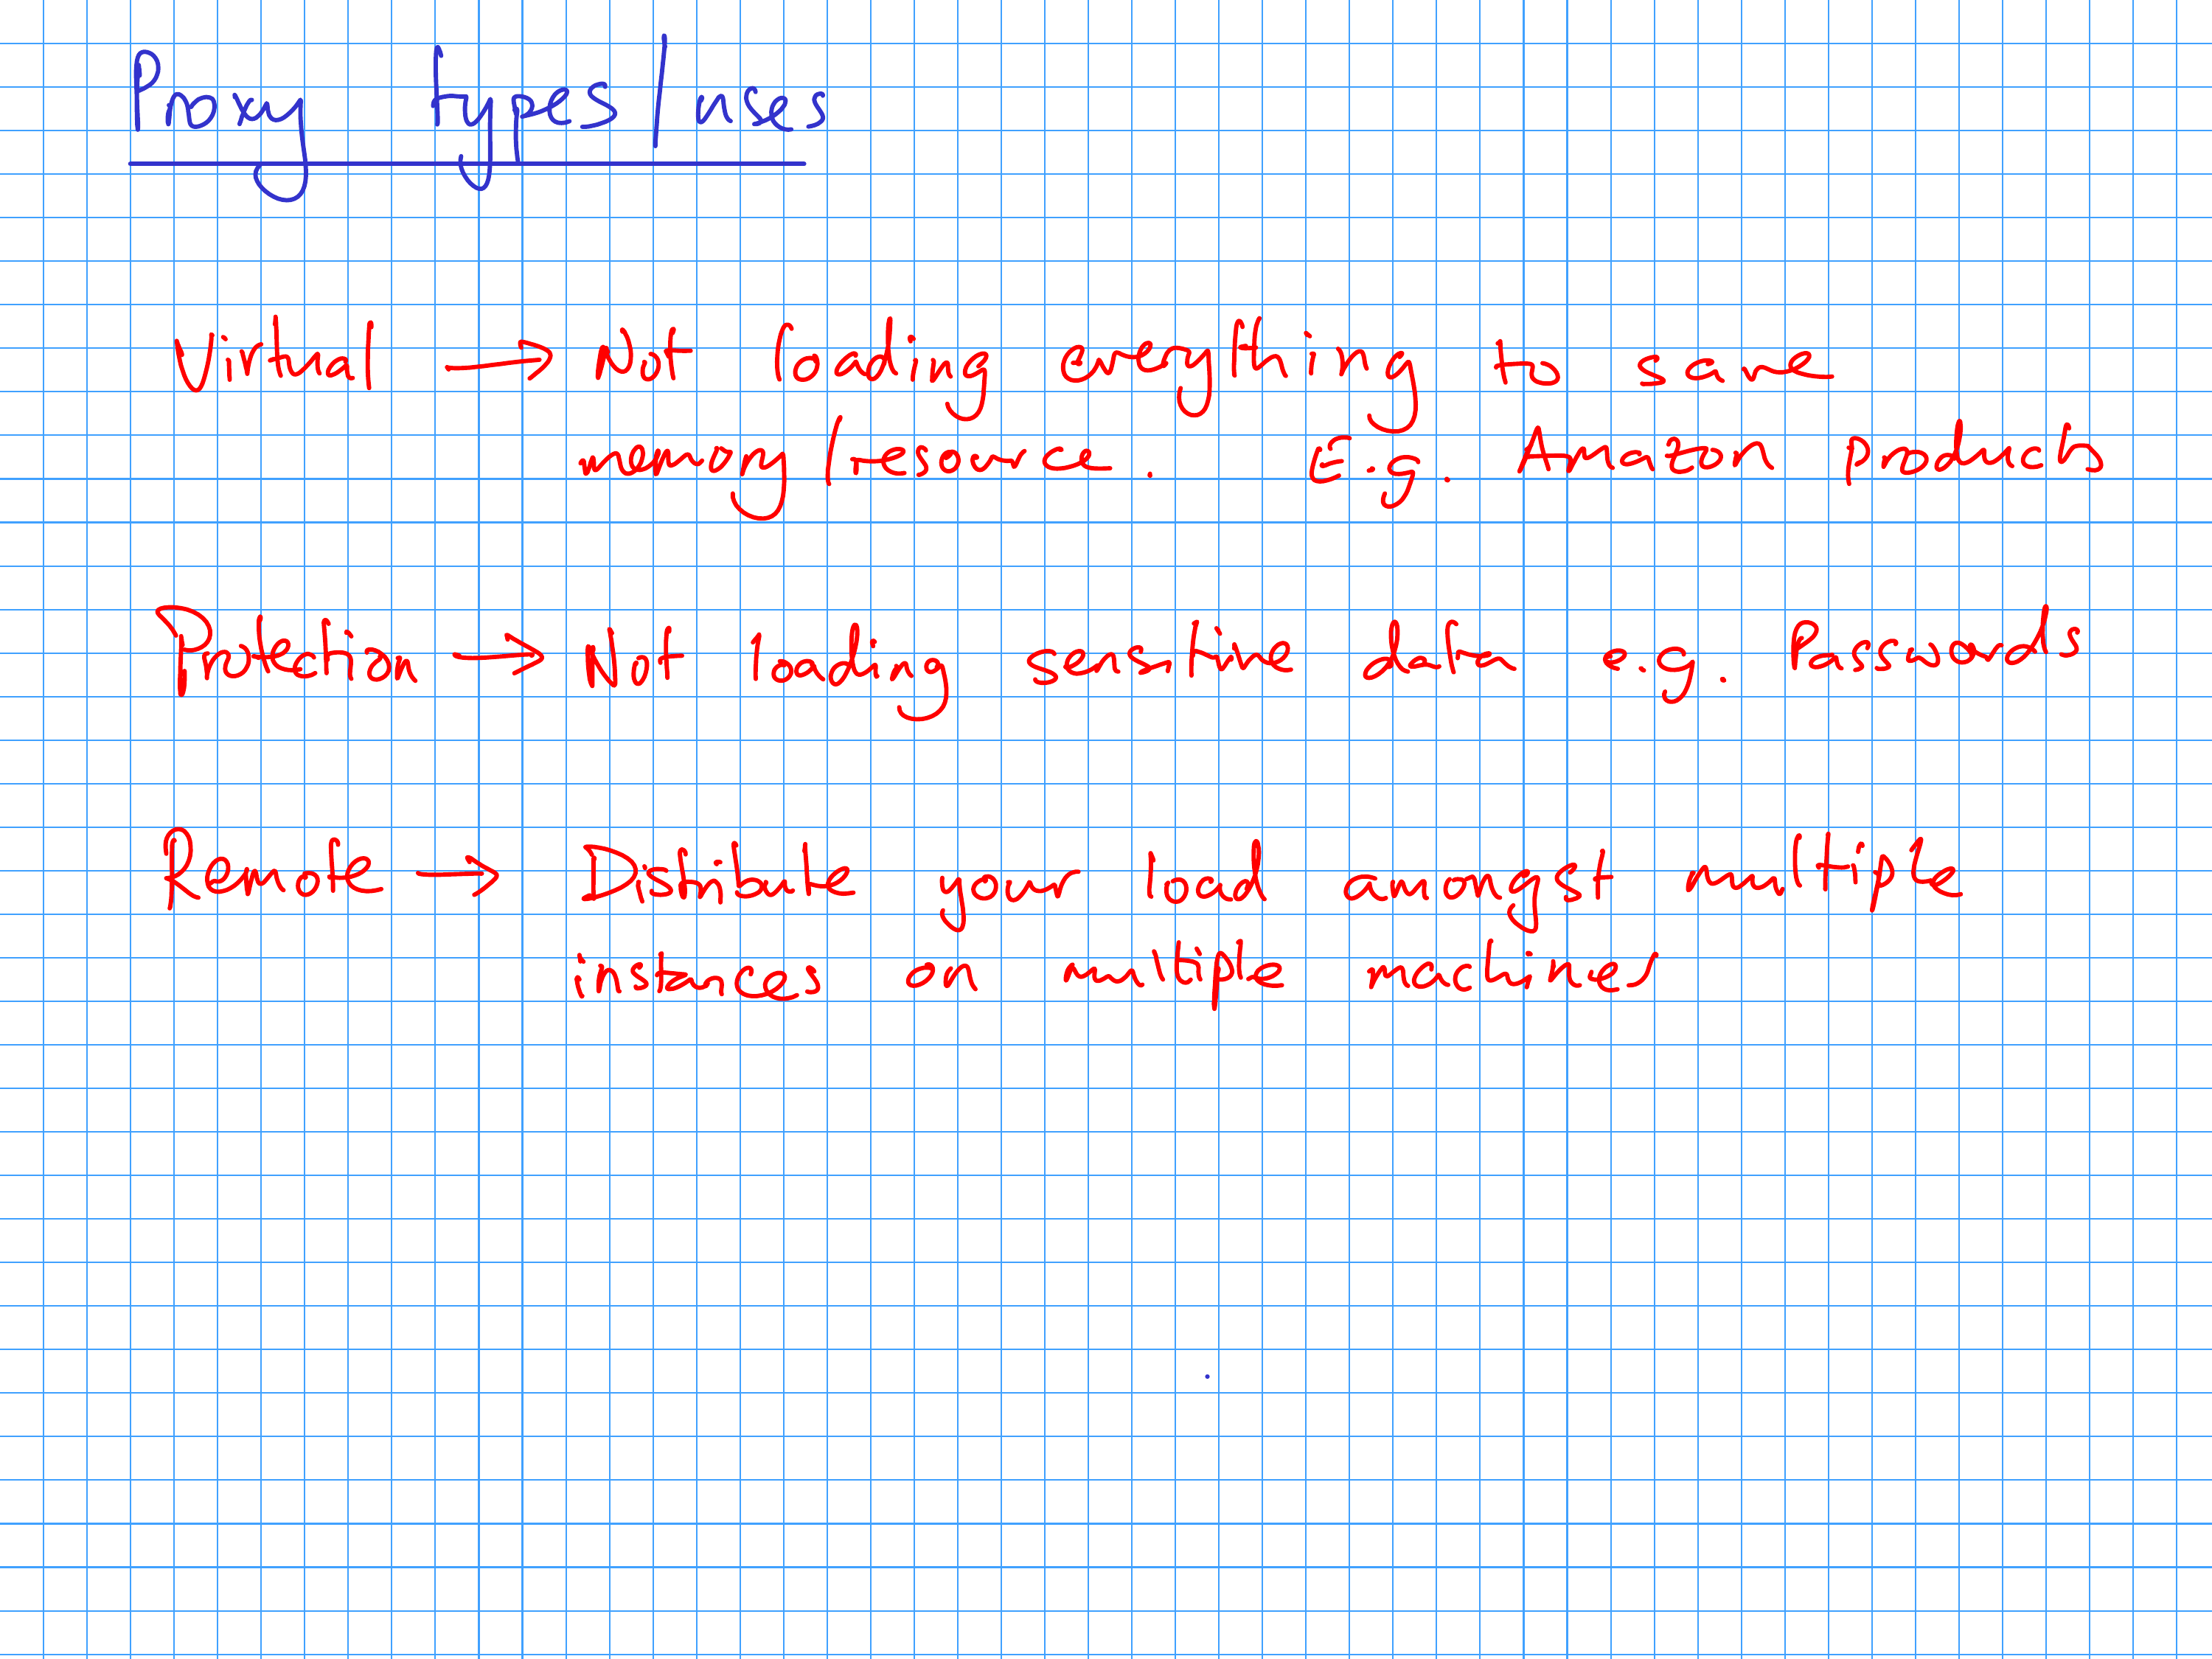 Proxy types/uses
Virtual → Not loading everything to save
memory/resource. E.g. Amazon products
Protection → Not loading sensitive data e.g. Passwords
Remote → Distribute your load amongst multiple
instances on multiple machines